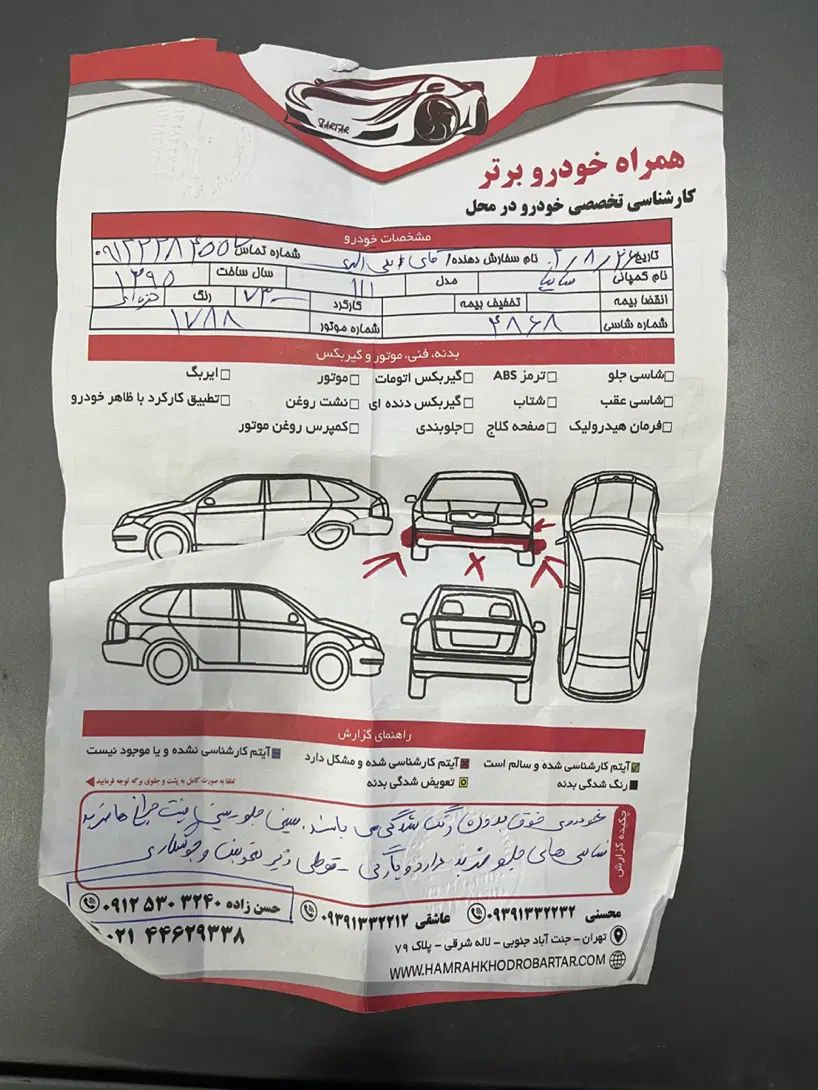 BARTAR
همراه خودرو برتر
کارشناسی تخصصی خودرو در محل
مشخصات خودرو
تاریخ ۲/۸/۲۶ نام سفارش دهنده/ آقای شماره تماس
نام کمپانی سایپا مدل ۱۱۱ سال ساخت ۱۳۹۵
انقضا بیمه تخفیف بیمه کارکرد رنگ
شماره شاسی ۴۸۶۸ شماره موتور ۱۷۸۸
بدنه، فنی، موتور و گیربکس
شاسی جلو ترمز ABS گیربکس اتومات موتور ایربگ
شاسی عقب شتاب گیربکس دنده ای نشت روغن تطبیق کارکرد با ظاهر خودرو
فرمان هیدرولیک صفحه کلاچ جلوبندی کمپرس روغن موتور
راهنمای گزارش
آیتم کارشناسی شده و سالم است آیتم کارشناسی شده و مشکل دارد آیتم کارشناسی نشده و یا موجود نیست
رنگ شدگی بدنه تعویض شدگی بدنه لطفا به صورت کامل به پشت و جلوی برگه توجه فرمایید
چکیده گزارش
خودروی فوق بدون رنگ شدگی می باشد. سینی جلو سینی پشت چراغ ها ضربه
شاسی های جلو ضربه دارد و پارگی - قوطی زیر تعویض و جوشکاری
محسنی ۰۹۳۹۱۳۳۲۲۳۲ عاشقی ۰۹۳۹۱۳۳۲۲۱۲ حسن زاده ۰۹۱۲ ۵۳۰ ۳۲۴۰
تهران - جنت آباد جنوبی - لاله شرقی - پلاک ۷۹ ۰۲۱ ۴۴۶۲۹۳۳۸
WWW.HAMRAHKHODROBARTAR.COM